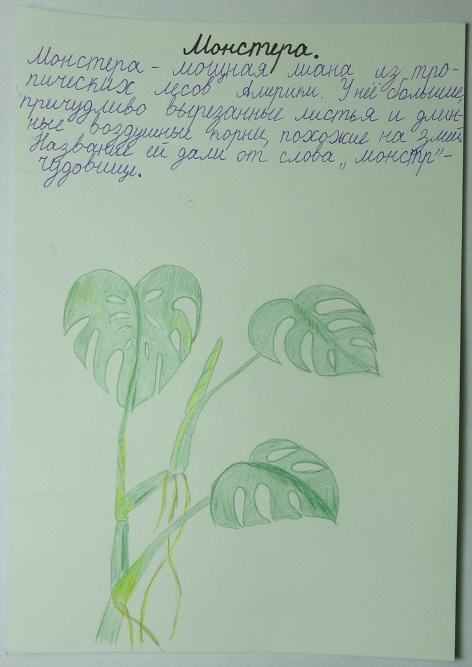 Монстера.
Монстера - мощная лиана из тро-
пических лесов Америки. У неё большие,
причудливо вырезанные листья и длин-
ные воздушные корни, похожие на змей.
Название ей дали от слова „монстр"-
чудовище.